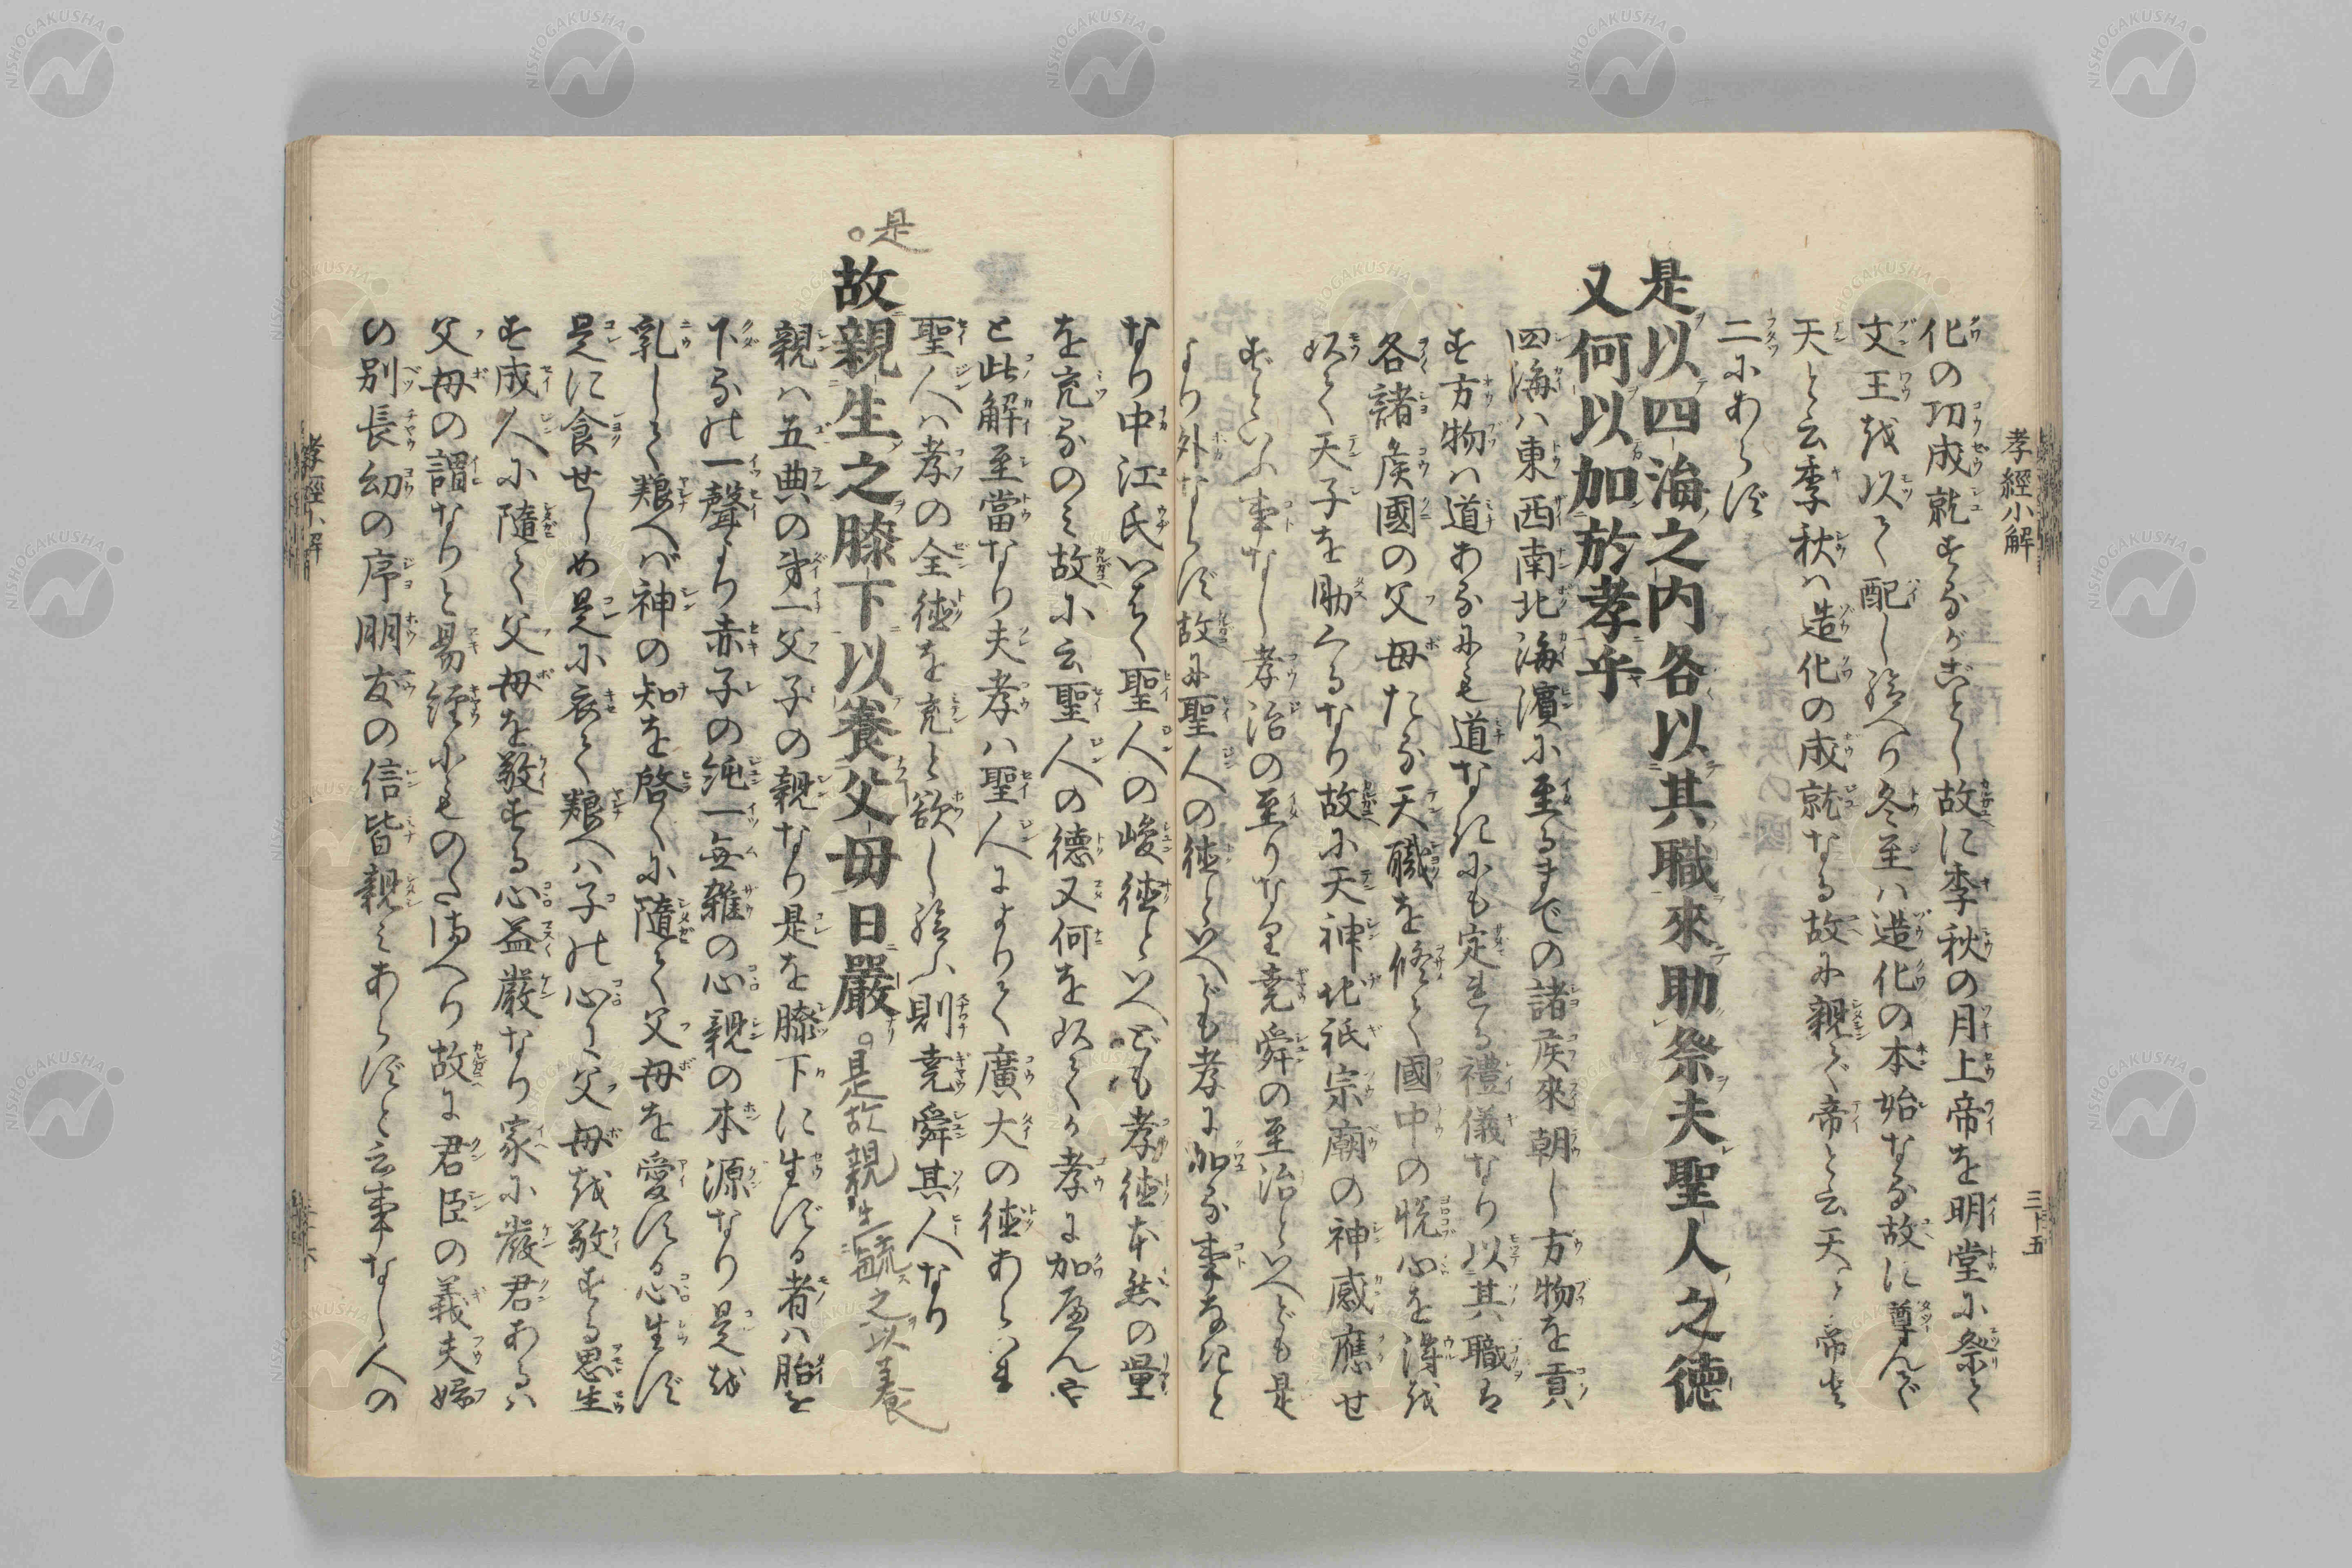 孝經小解
三十五
化の功成就するがごとし故に季秋の月上帝を明堂に祭て
文王を以て配し給へり冬至は造化の本始なる故に尊んで
天と云季秋は造化の成就なる故に親んで帝と云天と帝と
二にあらず
是以四海之内各以其職來助祭夫聖人之徳
又何以加於孝乎
四海ハ東西南北海濱に至るまでの諸侯來朝し方物を貢
す方物ハ道あるにも道なきにも定れる禮儀なり以其職は
各諸侯國の父母たる天職を修て國中の悦心を得を
以て天子を助くるなり故に天神地祇宗廟の神感應せ
ずといふ事なし孝治の至りなり堯舜の至治といへども是
より外ならず故に聖人の徳といへども孝に加る事なきと
なり中江氏いはく聖人の峻徳といへども孝徳本然の量
を充るのみ故に云聖人の德又何を以てか孝に加へんや
と此解至當なり夫孝ハ聖人によりて廣大の徳あらハれ
聖人ハ孝の全徳を充と欲し給ふ則堯舜其人なり
是
故親生之膝下以養父母日嚴
是故親生毓之以養
親ハ五典の第一父子の親なり是を膝下に生ずる者ハ胎を
下るの一聲より赤子の純一無雜の心親の本源なり是を
乳して粮へば神の知を啓くに隨て父母を愛する心生ず
是に食せしめ是に衣て粮へハ子の心に父母を敬する思生
す成人に隨て父母を敬する心益嚴なり家に嚴君あるハ
父母の謂なりと易經にものたまへり故に君臣の義夫婦
の別長幼の序朋友の信皆親みあらずと云事なし人の
孝經小解